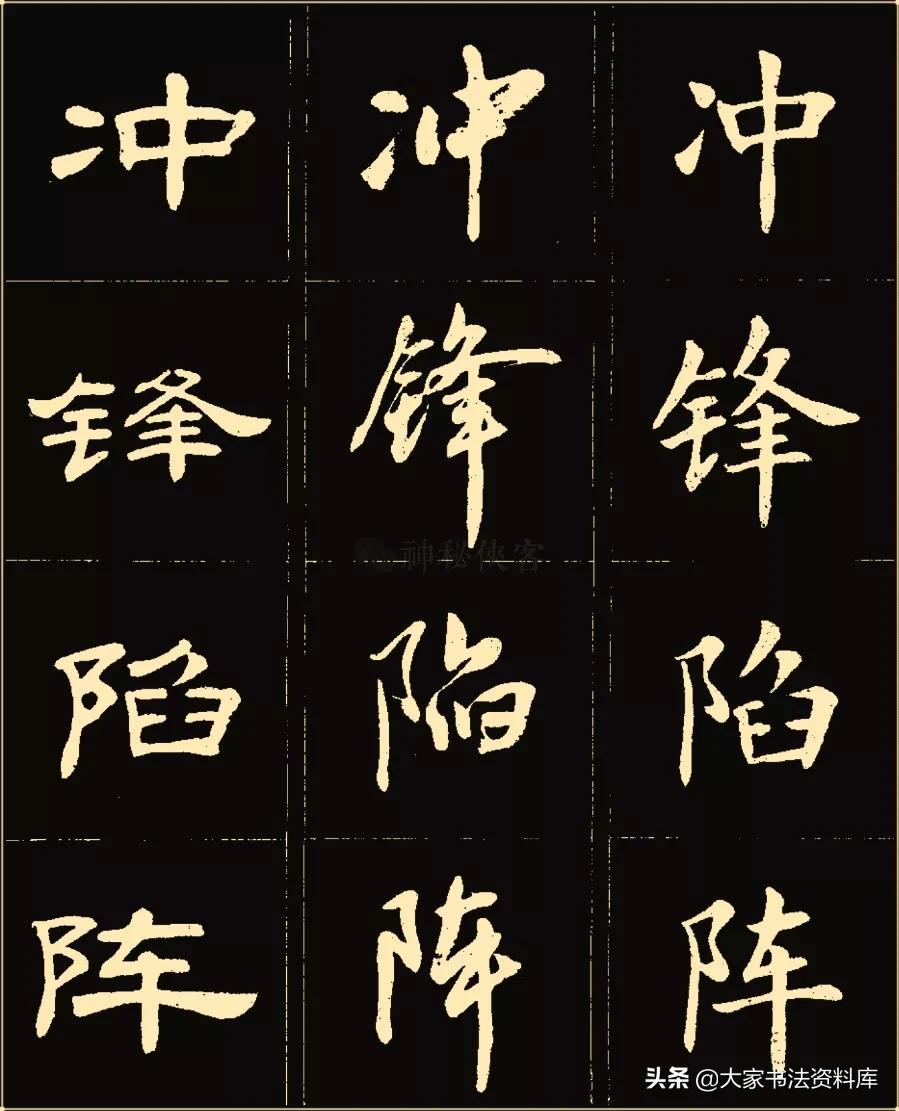 冲 冲 冲
锋 锋 锋
神秘侠客
陷 陷 陷
阵 阵 阵
头条 @大家书法资料库